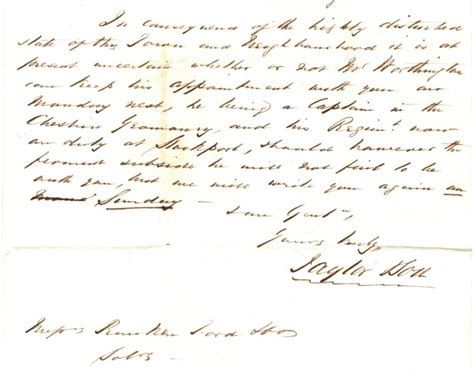 In consequence of the highly disturbed
state of this Town and Neighbourhood it is at
present uncertain whether or not Mr Worthington
can keep his appointment with you on
Monday next, he being a Captain in the
Cheshire Yeomanry, and his Regimt. now
on duty at Stockport, should however the
ferment subside he will not fail to be
with you, but we will write you again on
Sunday –
I am Gentn,
Yours truly,
Taylor
Messrs Ford &
Solrs –